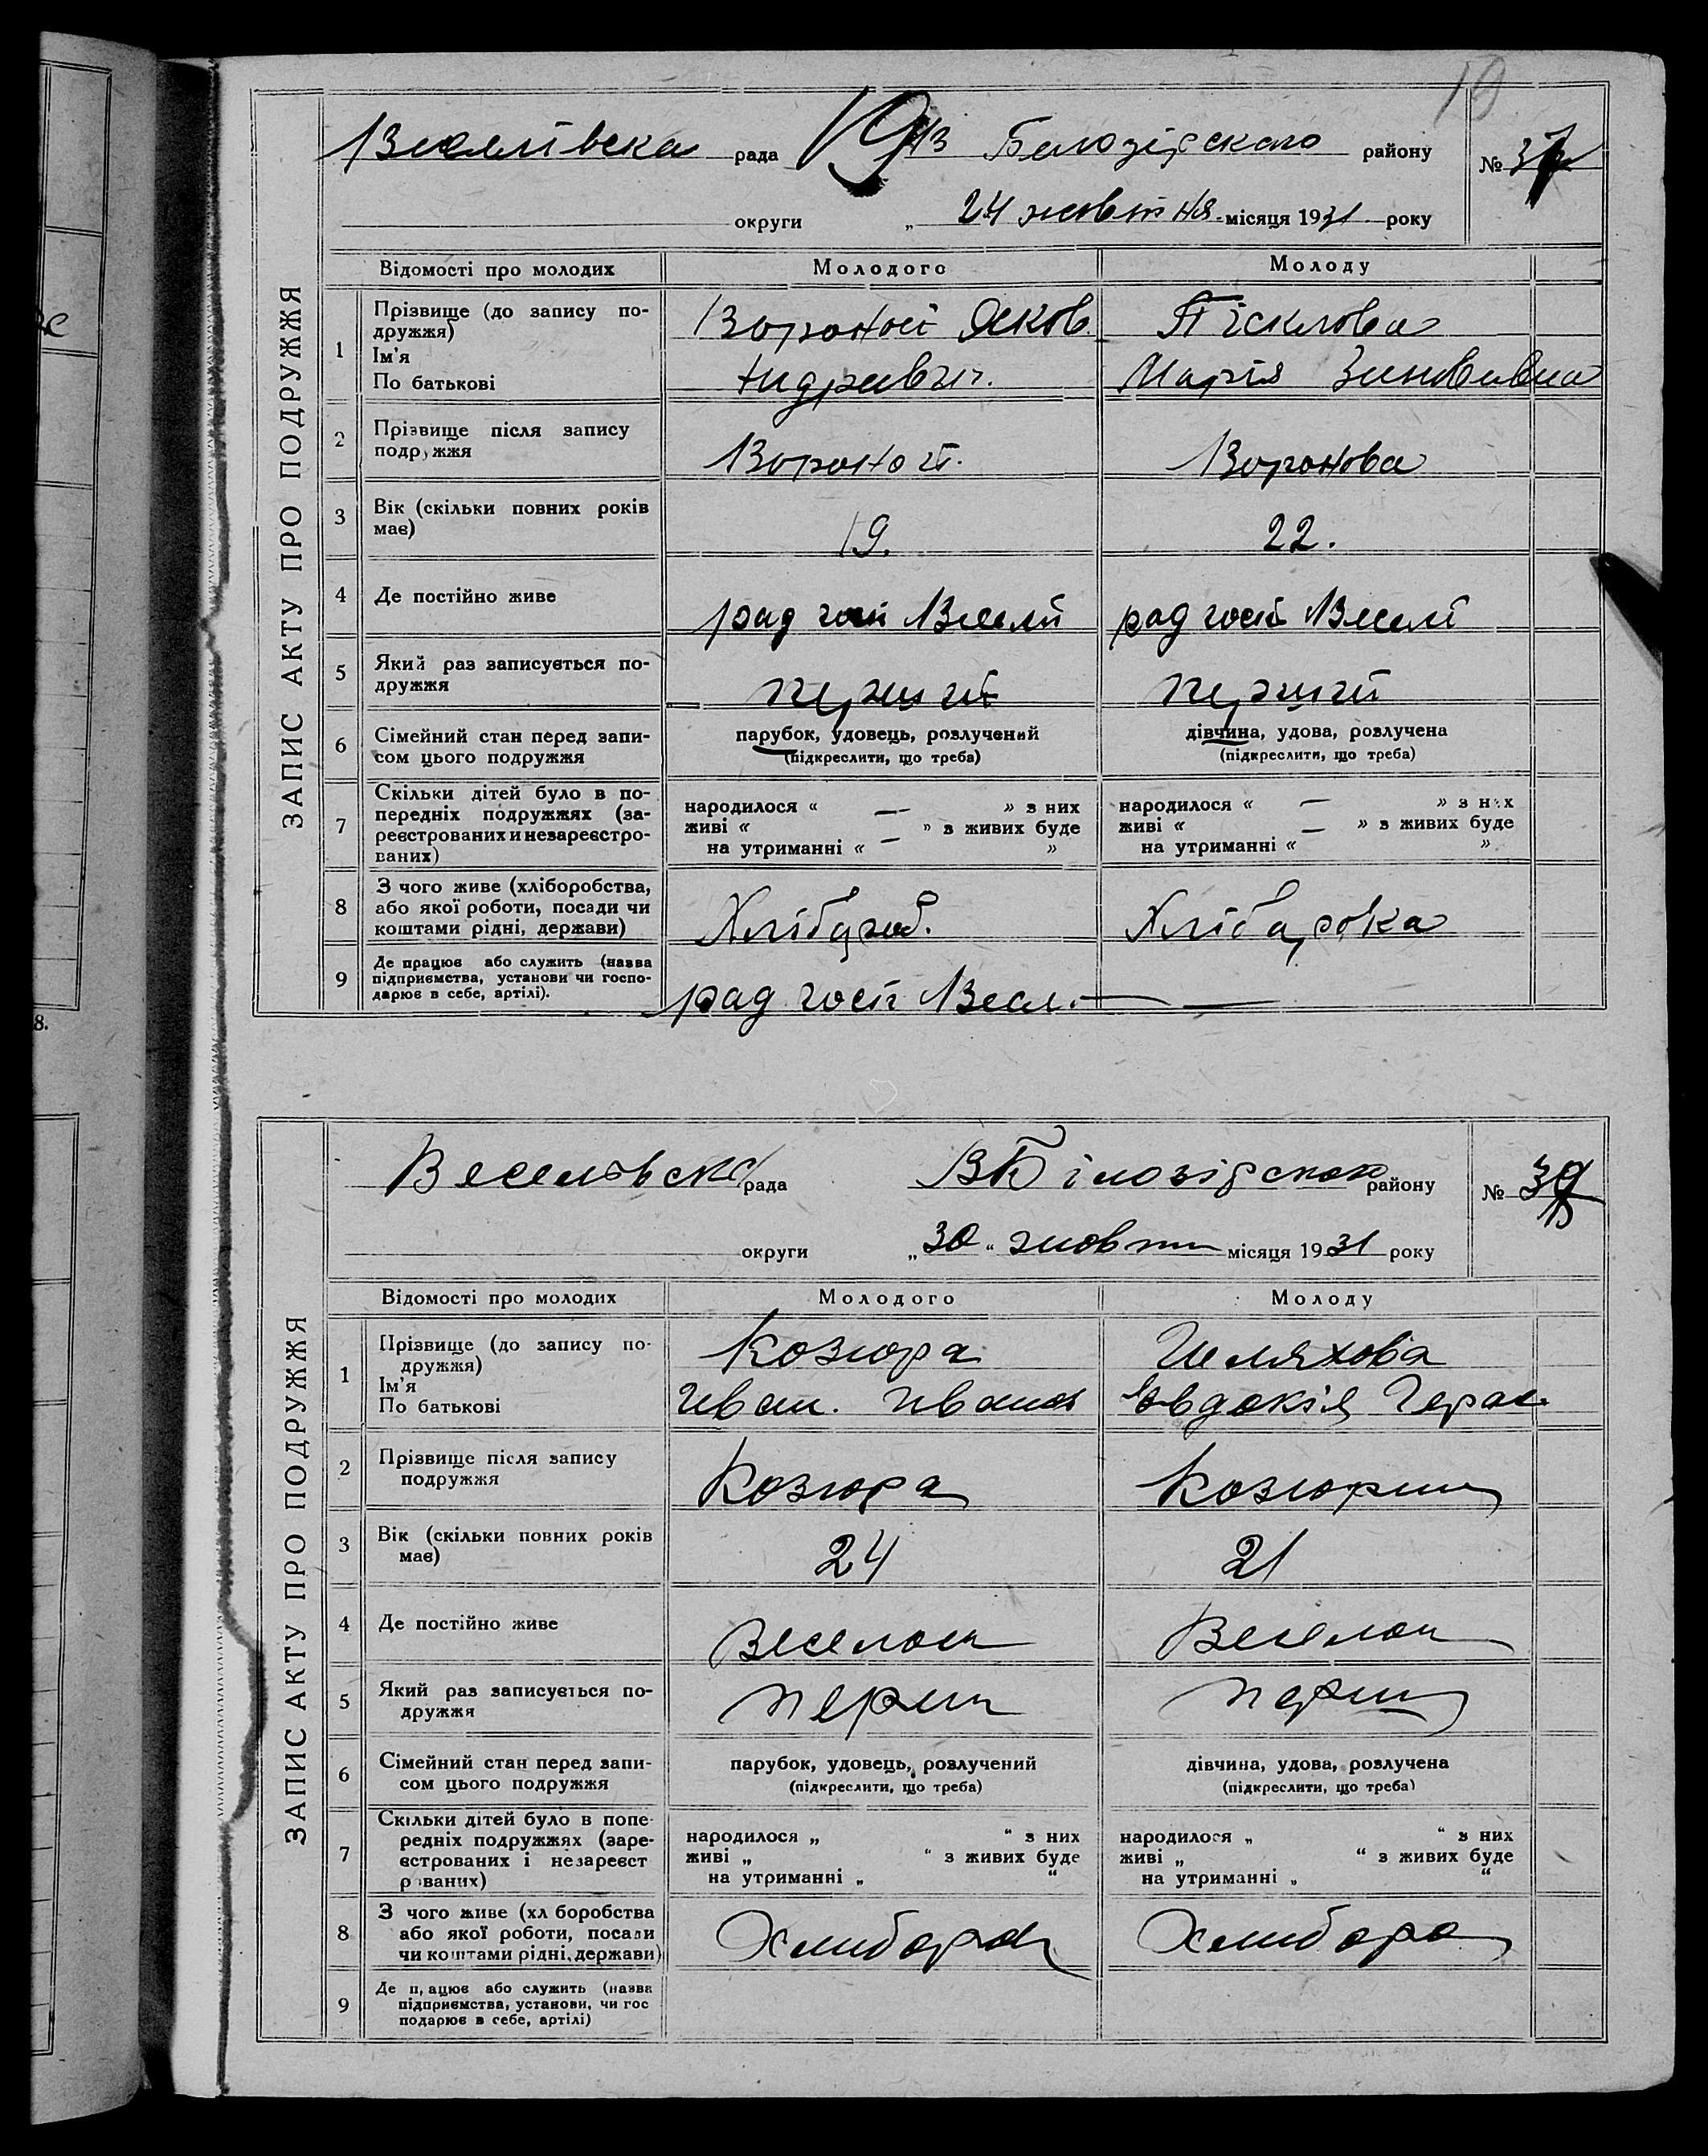 19
Веселівска рада 19 В.-Білозірского району № 37
округи „ 24 жовтня місяця 1931 року
ЗАПИС АКТУ ПРО ПОДРУЖЖЯ
Відомості про молодих Молодого Молоду
1 Прізвище (до запису по-дружжя) Вороной Яков Пісклова
Ім'я
По батькові Андревич. Марія Зиновивна
2 Прізвище після запису подружжя Вороной. Воронова
3 Вік (скільки повних років має) 19. 22.
4 Де постійно живе рад госп Веселий рад госп Веселий
5 Який раз записується по-дружжя перший перший
6 Сімейний стан перед запи-сом цього подружжя парубок, удовець, розлучений дівчина, удова, розлучена
(підкреслити, що треба) (підкреслити, що треба)
7 Скільки дітей було в по-передніх подружжях (за-реєстрованих и незареєстро-ваних) народилося “ — ” з них народилося “ — ” з них
живі “ ” з живих буде живі “ — ” з живих буде
на утриманні “ — ” на утриманні “ ”
8 З чого живе (хліборобства, або якої роботи, посади чи коштами рідні, держави) Хлібороб. Хліборобка
9 Де працює або служить (назва підприємства, установи чи госпо-дарює в себе, артілі). рад госп Весел. — —
8.
Веселовска рада ВБілозірского району № 39
округи „ 30 “ жовтня місяця 1931 року
ЗАПИС АКТУ ПРО ПОДРУЖЖЯ
Відомості про молодих Молодого Молоду
1 Прізвище (до запису по-дружжя) Козюра Шляхова
Ім'я
По батькові Иван. Иванов Євдокія Герас.
2 Прізвище після запису подружжя Козюра Козюрин
3 Вік (скільки повних років має) 24 21
4 Де постійно живе Веселом Веселом
5 Який раз записується по-дружжя перши перши
6 Сімейний стан перед запи-сом цього подружжя парубок, удовець, розлучений дівчина, удова, розлучена
(підкреслити, що треба) (підкреслити, що треба)
7 Скільки дітей було в попе-редніх подружжях (заре-єстрованих і незареєст р ваних) народилося „ “ з них народилося „ “ з них
живі „ “ з живих буде живі „ “ з живих буде
на утриманні „ “ на утриманні „ “
8 З чого живе (хл боробства або якої роботи, посади чи коштами рідні, держави) Хлибороб Хлибора
9 Де п, ацює або служить (назва підприємства, установи, чи гос подарює в себе, артілі)